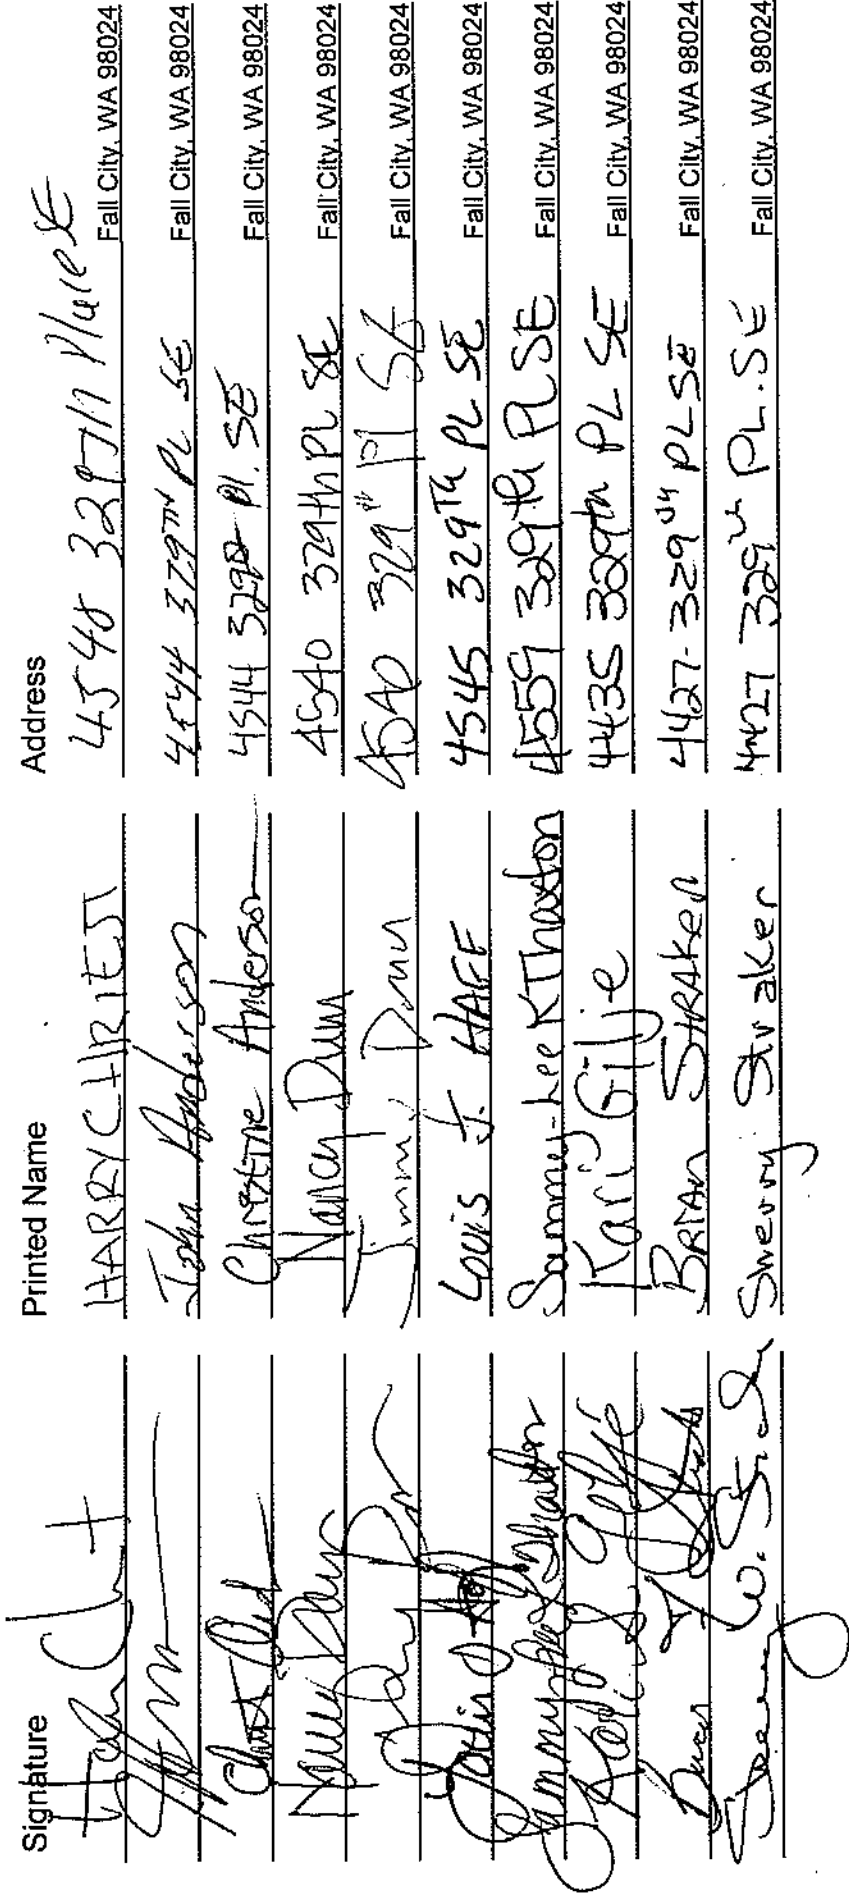 Signature Printed Name Address
HARRY CHRIEST 4548 329th Place SE Fall City, WA 98024
John Anderson 4544 329TH PL SE Fall City, WA 98024
Christine Anderson 4544 329 Pl. SE Fall City, WA 98024
Nancy Dunn 4540 329th PL SE Fall City, WA 98024
Jimmy Dunn 4540 329th Pl SE Fall City, WA 98024
Louis J. HAFF 4545 329TH PL SE Fall City, WA 98024
Sammy-Lee K Thaxton 4559 329th PL SE Fall City, WA 98024
Kari Gilje 4435 329th PL SE Fall City, WA 98024
BRIAN STRAKER 4427-329TH PL SE Fall City, WA 98024
Sherry Straker 4427 329th PL. SE Fall City, WA 98024